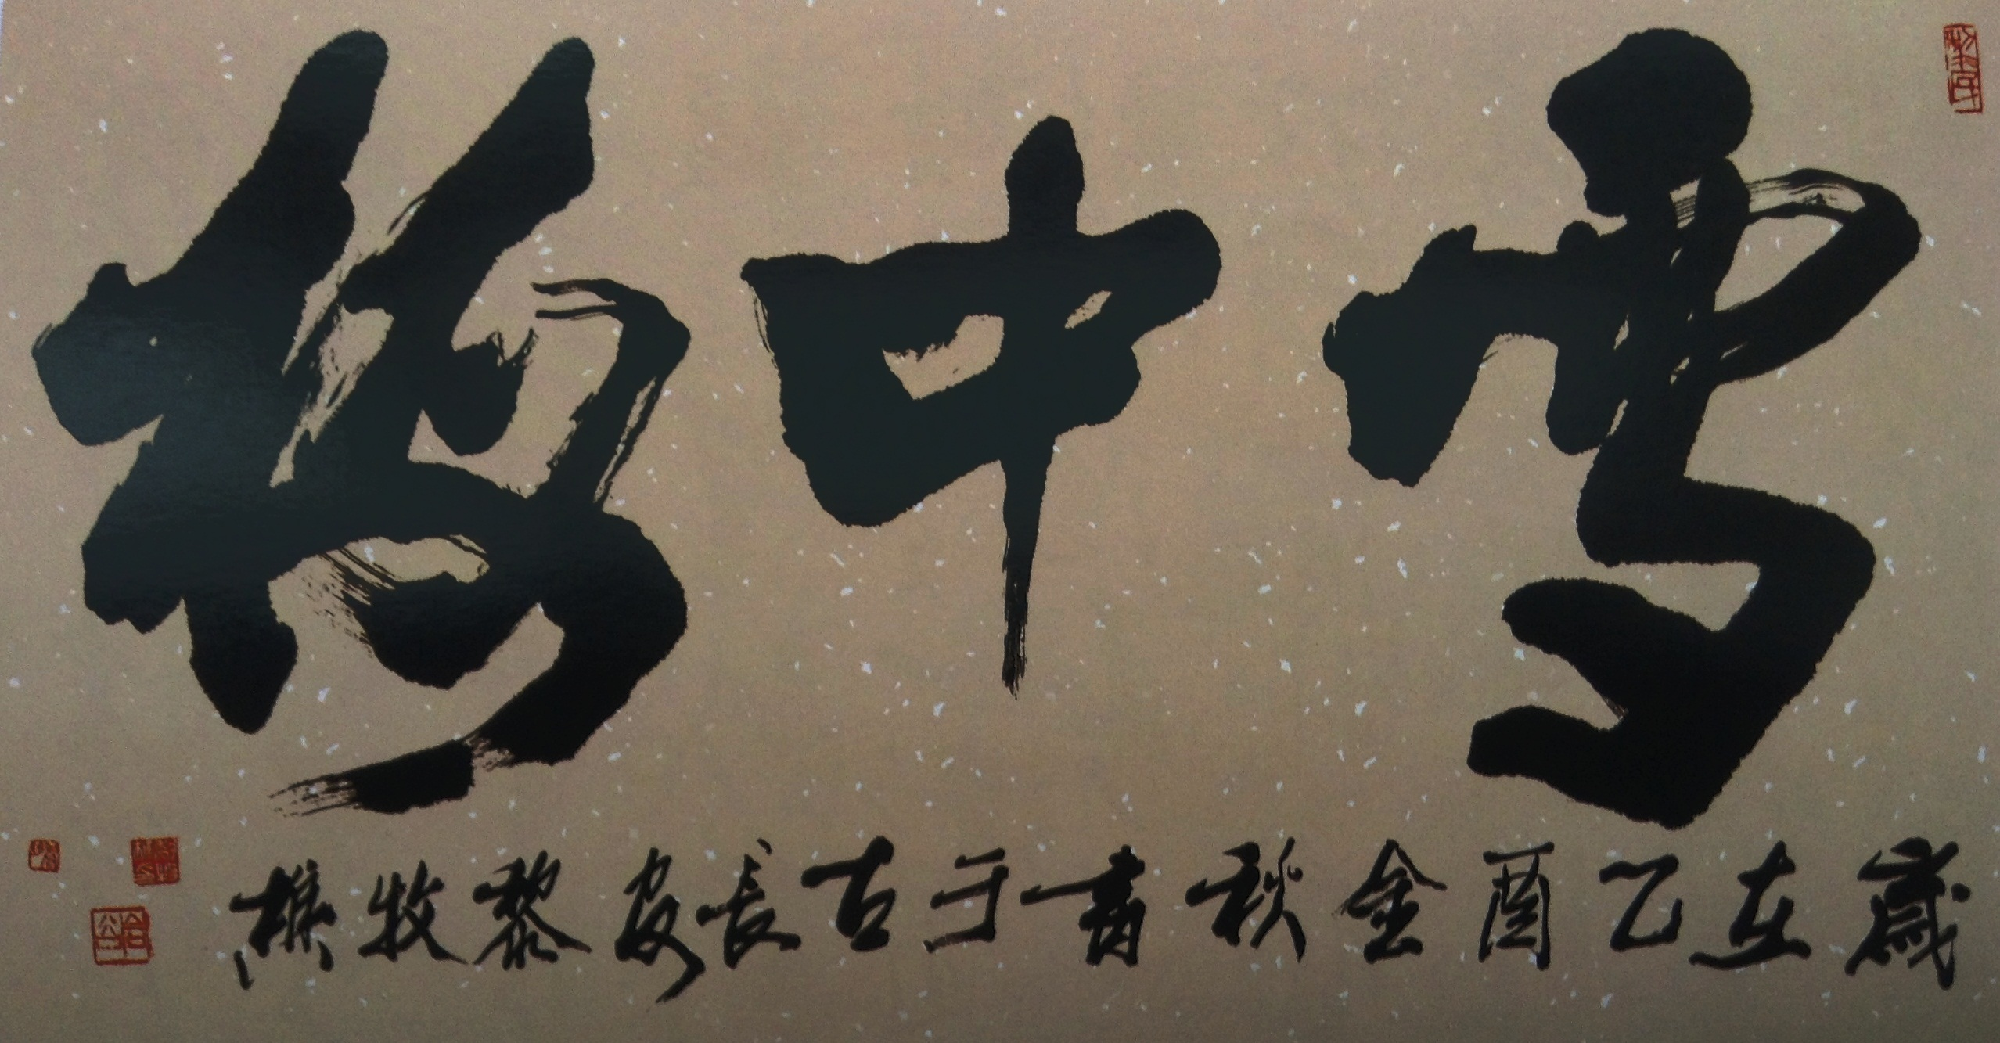 雪中梅
歲在乙酉金秋書于古長安黎牧樵